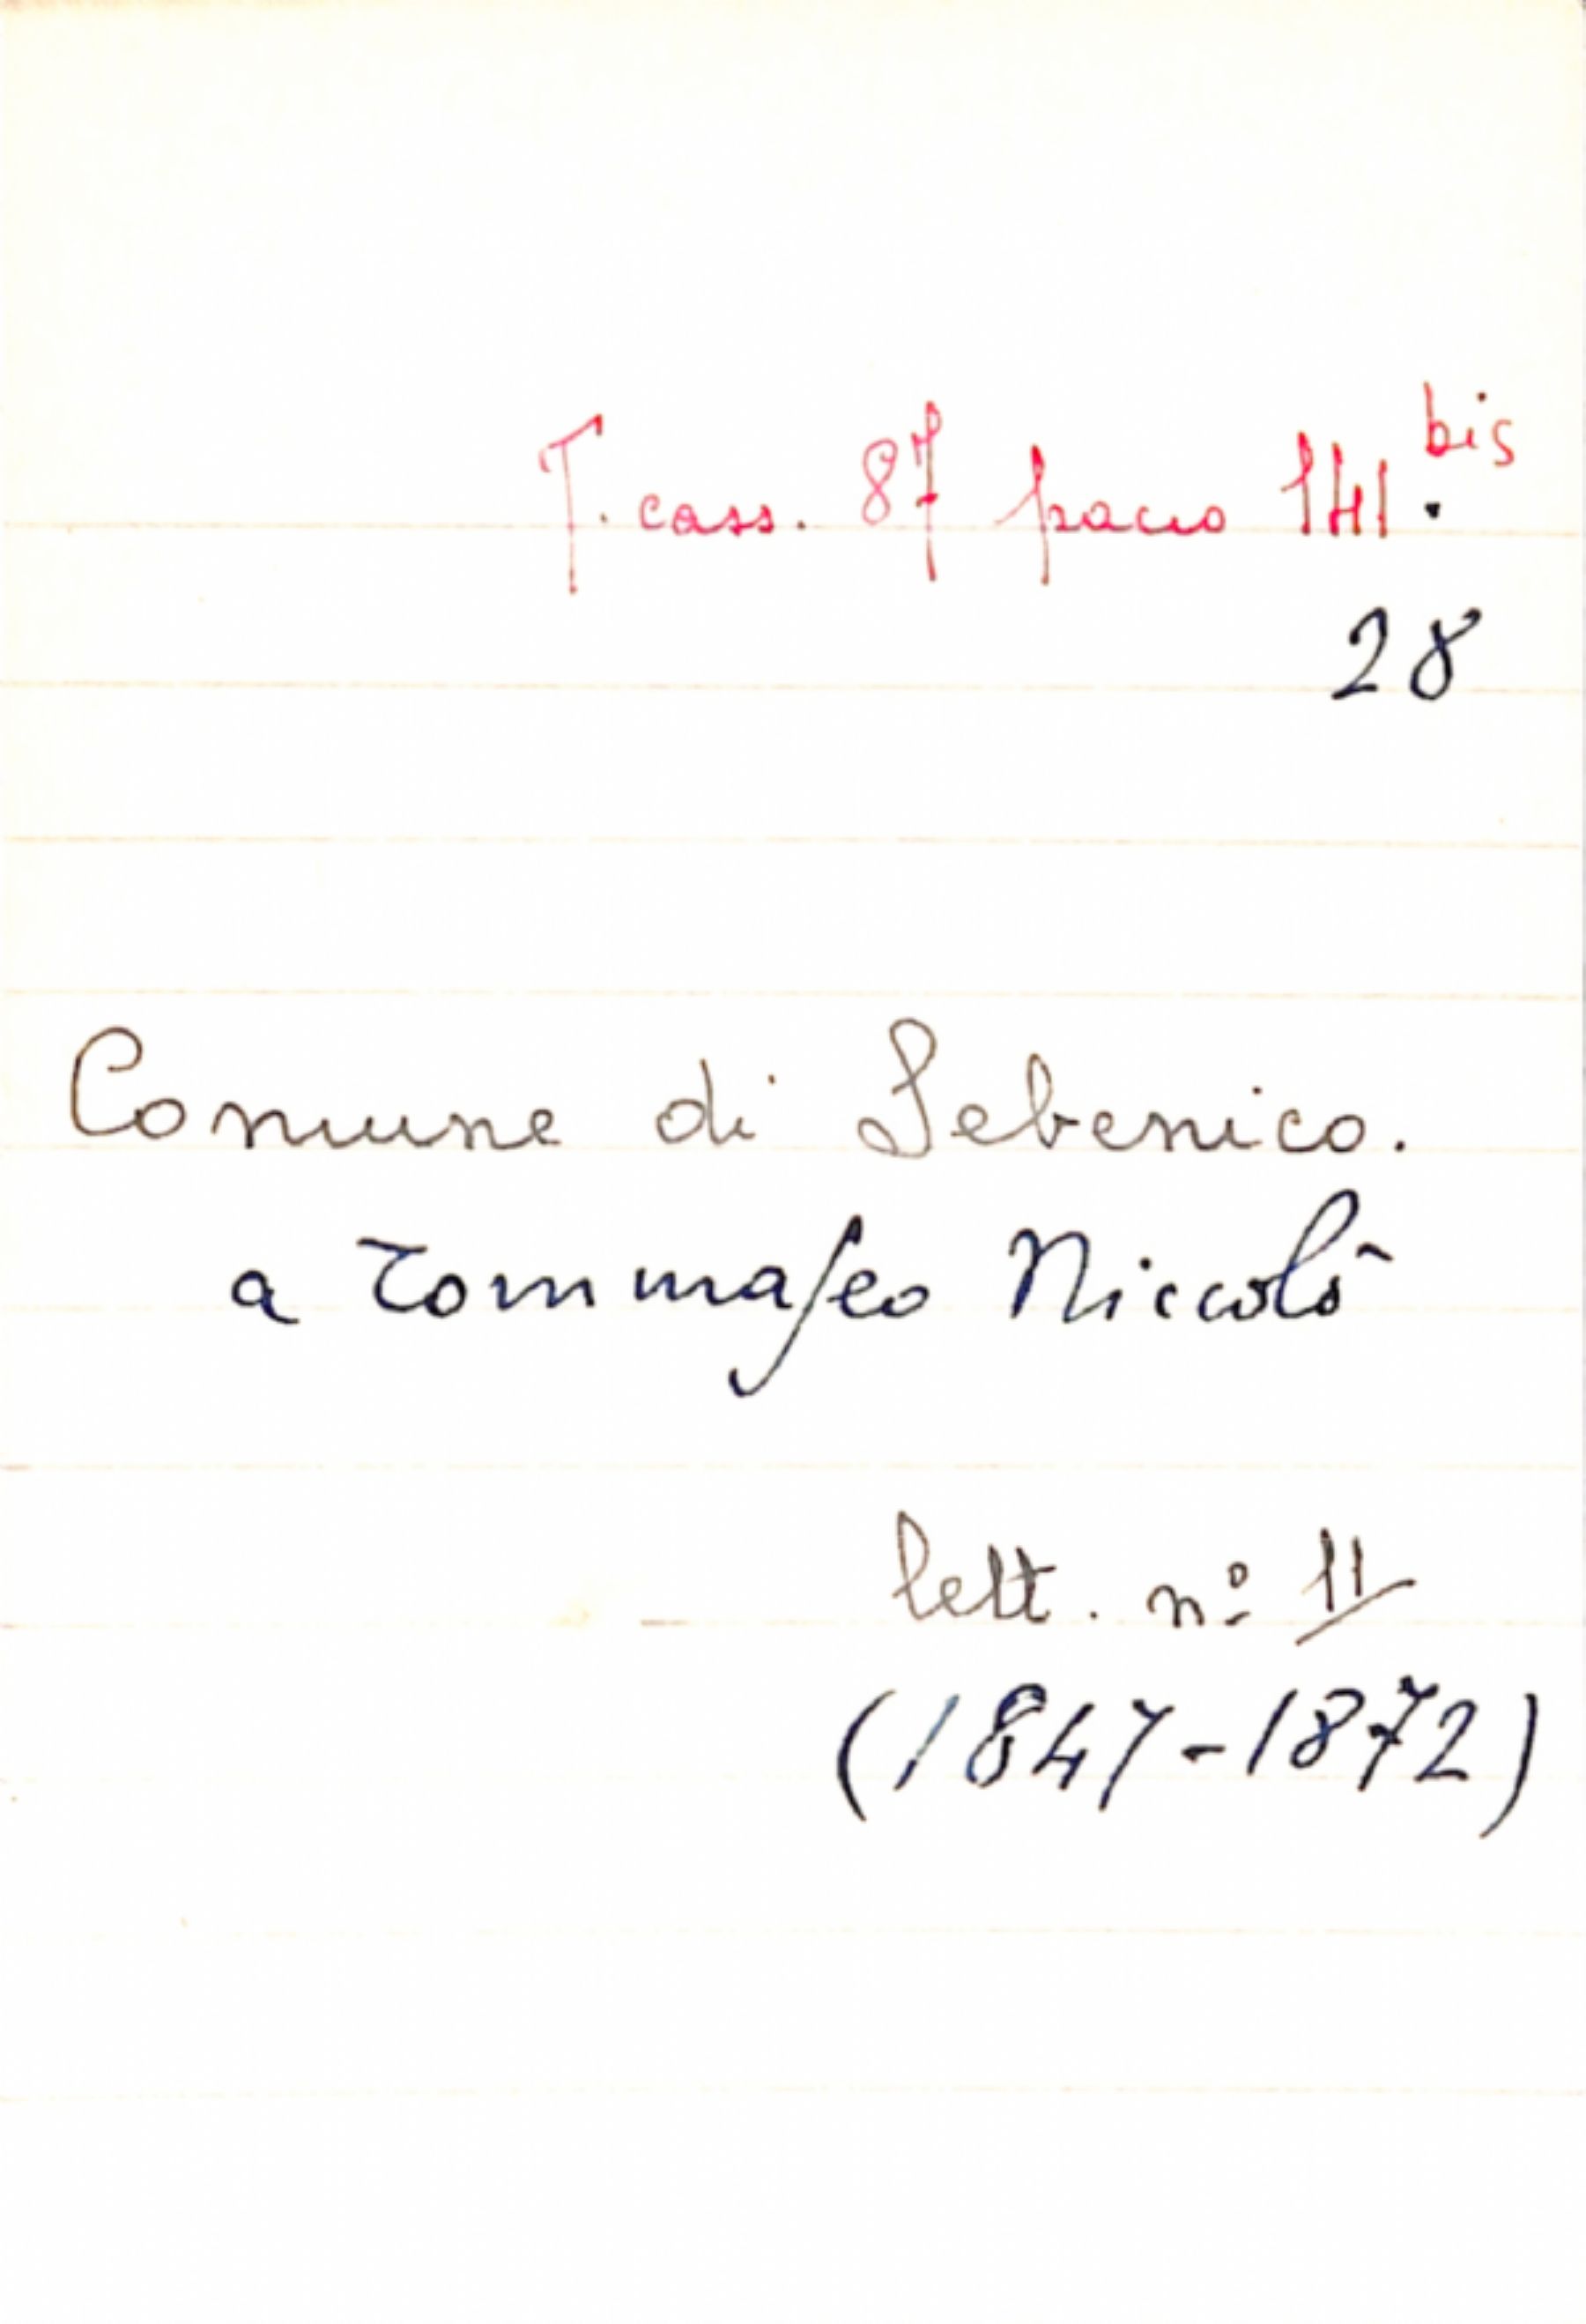 T. cass. 87 pacco 141. bis
28
Comune di Sebenico.
a Tommaseo Niccolò
lett. nº 11
(1847-1872)